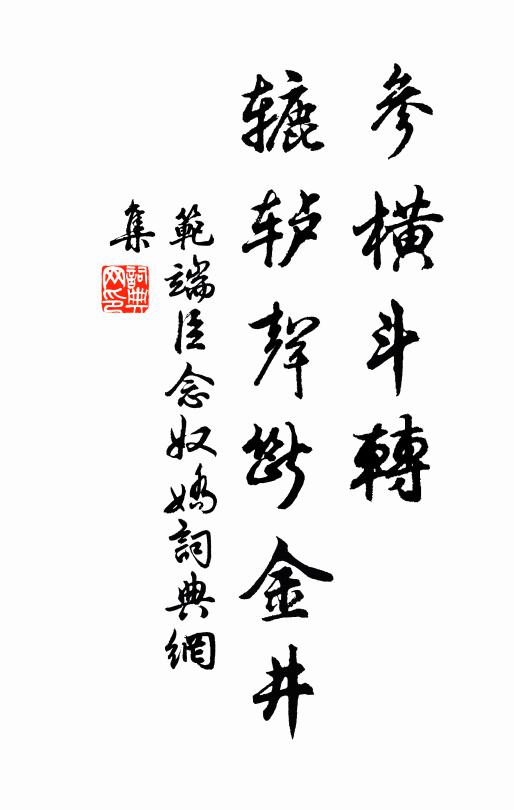 參橫斗轉
辘轳聲斷金井
範端臣念奴嬌詞典網
集
詞典網印